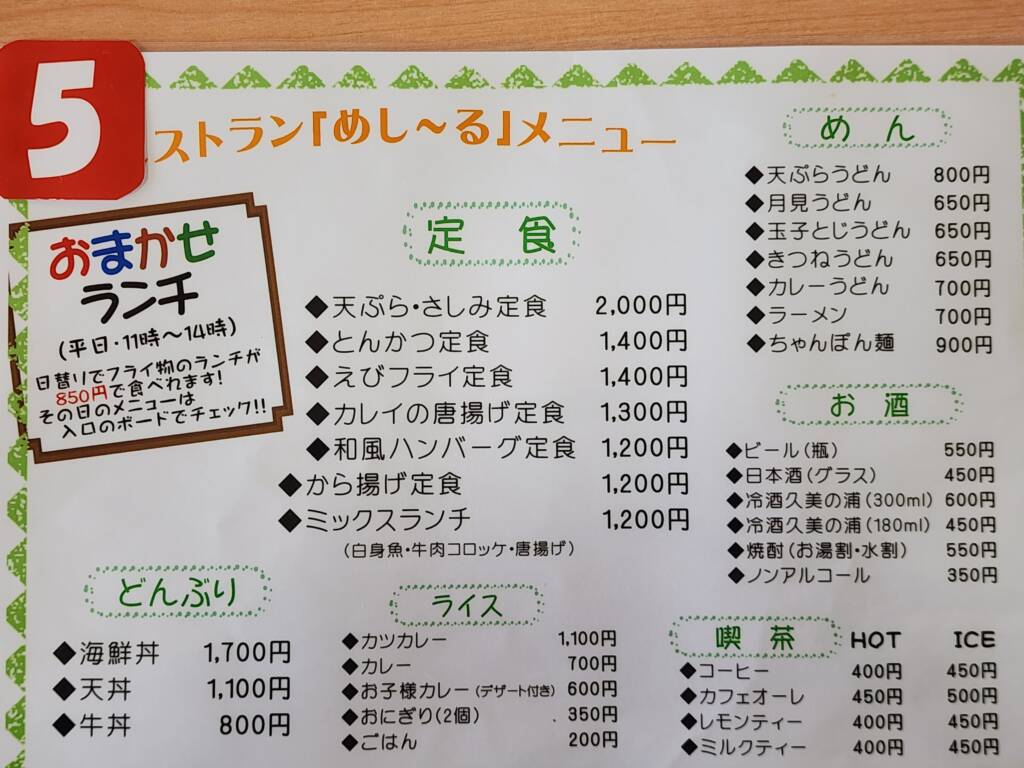 5
ストラン「めし～る」メニュー
おまかせ
ランチ
(平日・11時～14時)
日替りでフライ物のランチが
850円で食べれます!
その日のメニューは
入口のボードでチェック!!
定 食
◆天ぷら・さしみ定食 2,000円
◆とんかつ定食 1,400円
◆えびフライ定食 1,400円
◆カレイの唐揚げ定食 1,300円
◆和風ハンバーグ定食 1,200円
◆から揚げ定食 1,200円
◆ミックスランチ 1,200円
(白身魚・牛肉コロッケ・唐揚げ)
め ん
◆天ぷらうどん 800円
◆月見うどん 650円
◆玉子とじうどん 650円
◆きつねうどん 650円
◆カレーうどん 700円
◆ラーメン 700円
◆ちゃんぽん麺 900円
お 酒
◆ビール(瓶) 550円
◆日本酒(グラス) 450円
◆冷酒久美の浦(300ml) 600円
◆冷酒久美の浦(180ml) 450円
◆焼酎(お湯割・水割) 550円
◆ノンアルコール 350円
どんぶり
◆海鮮丼 1,700円
◆天丼 1,100円
◆牛丼 800円
ライス
◆カツカレー 1,100円
◆カレー 700円
◆お子様カレー(デザート付き) 600円
◆おにぎり(2個) 350円
◆ごはん 200円
喫 茶 HOT ICE
◆コーヒー 400円 450円
◆カフェオーレ 450円 500円
◆レモンティー 400円 450円
◆ミルクティー 400円 450円